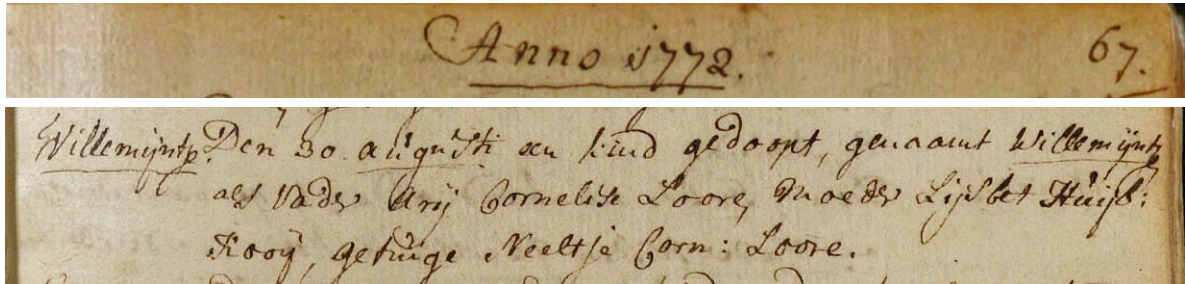 Anno 1772. 67.
Willemijntje. Den 30 augusti een kind gedoopt, genaamt Willemijntje
als Vader Arij Cornelisse Loore, Moeder Lijsbet Huijb:
Kooij, getuige Neeltje Corn: Loore.